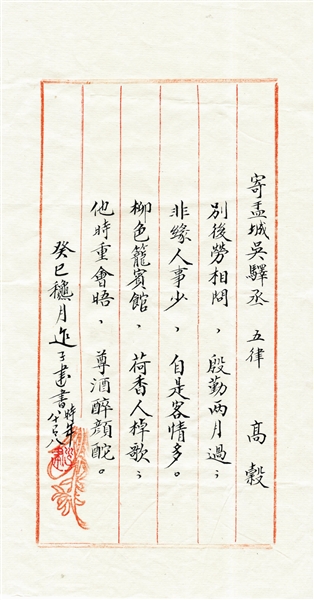 寄盂城吳驛丞 五律 高穀
別後勞相問，殷勤兩月過；
非緣人事少，自是客情多。
柳色籠賓館，荷香入棹歌；
他時重會晤，尊酒醉顏酡。
癸巳穐月 書 時年